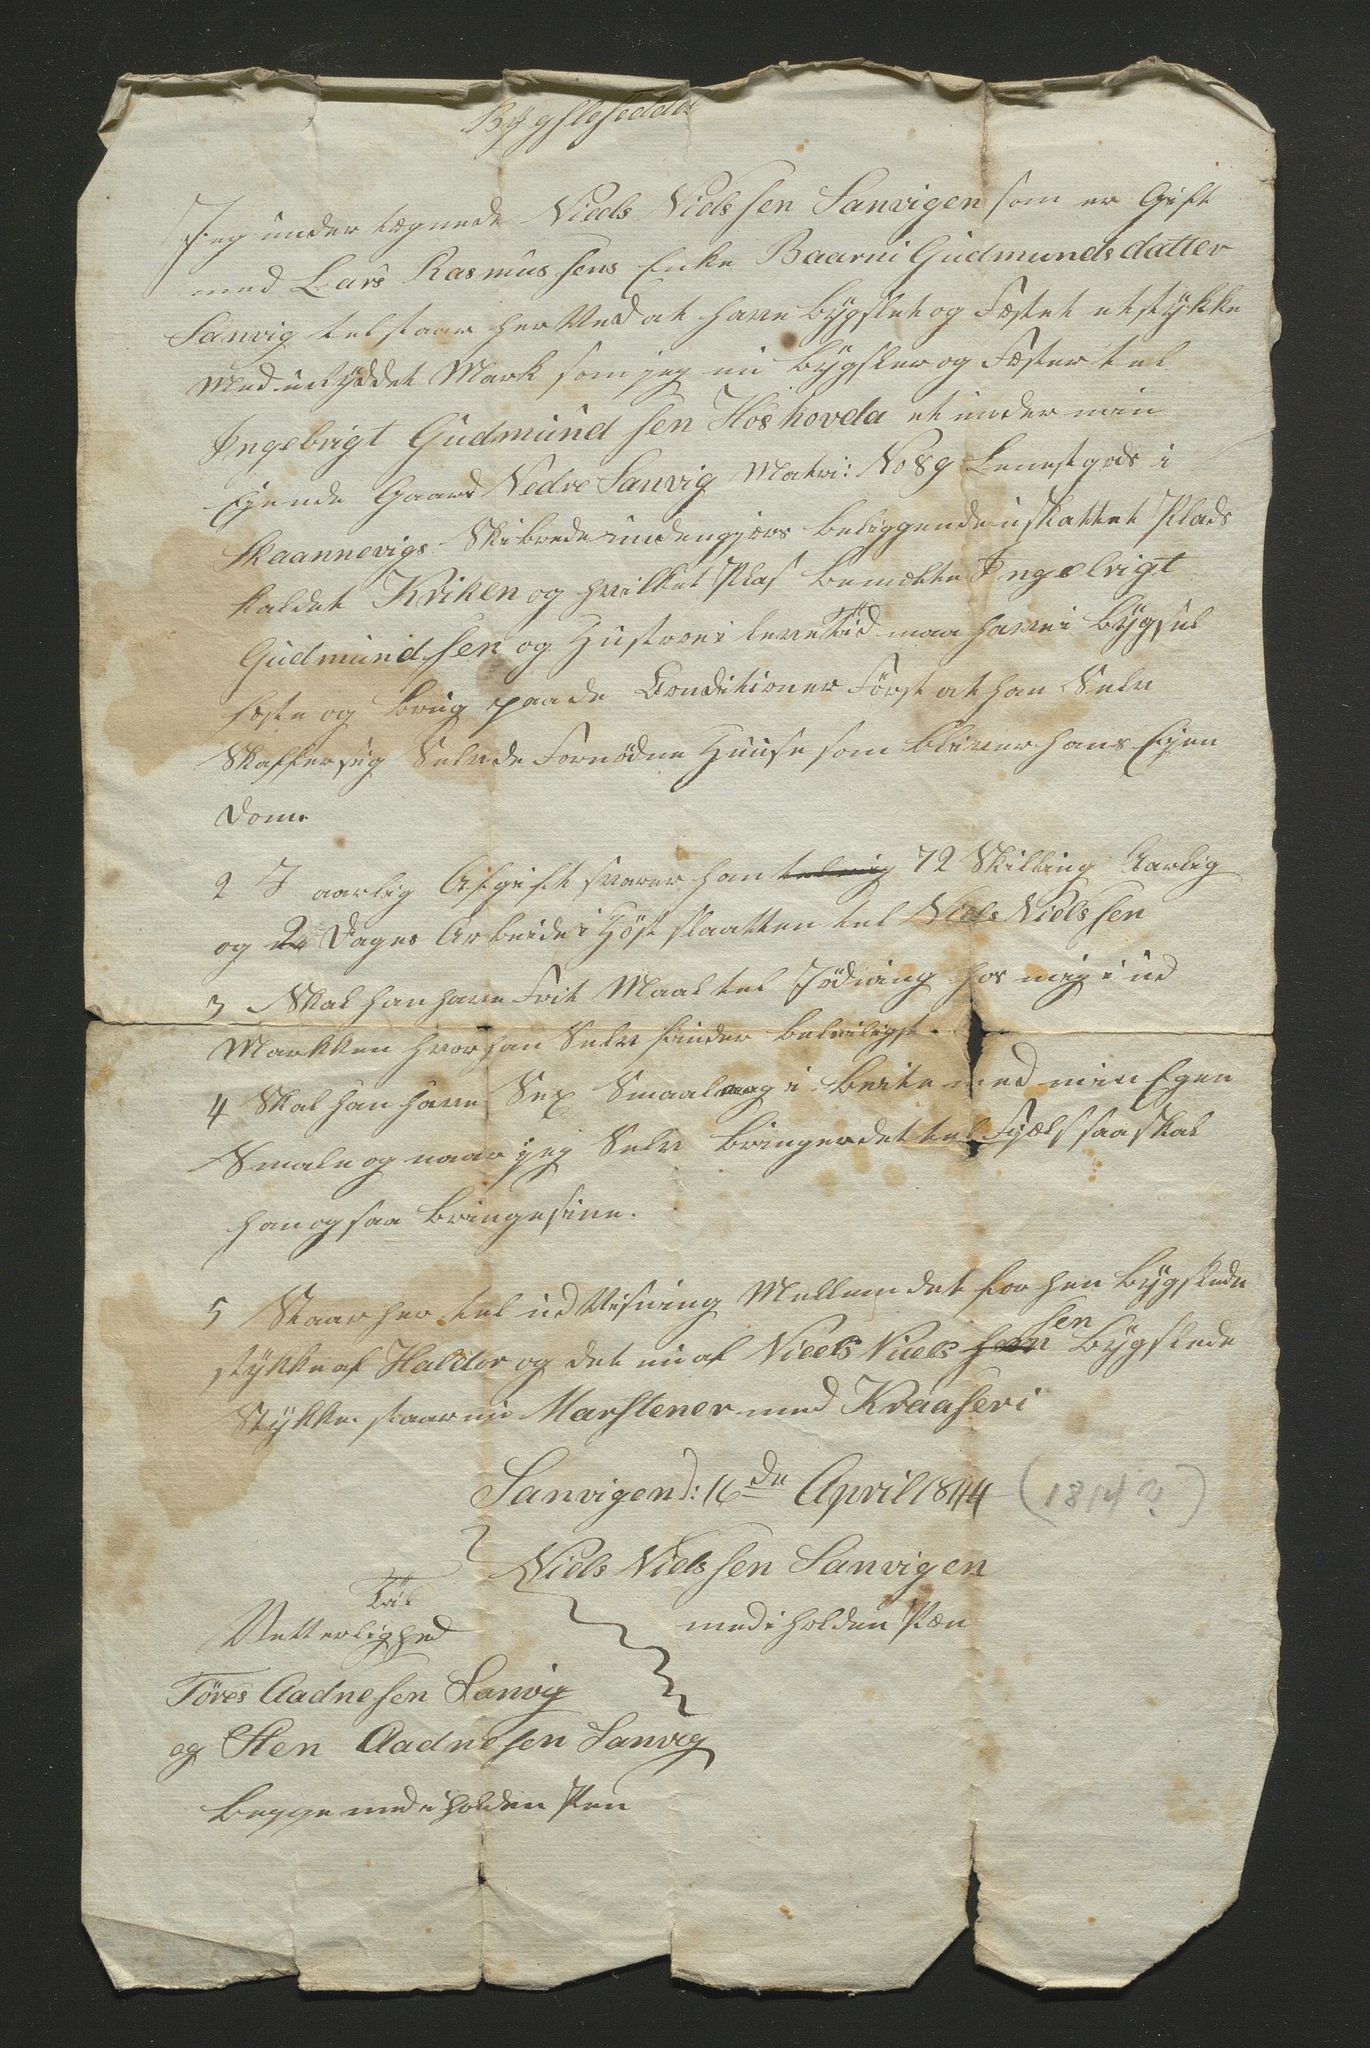 Bygslesedde
Jeg under tegnede Nieds Nielssen Sanvigen som er Gift
med Lars Rasmussens Enke Baarni Gudmundsdatter
Sanvig tel staar her Ved at have bygslet og Fæstet et stykke
Med u rÿddet Mark som jeg nu bygsler og Fæster tel
Ingebrigt Gudmundsen Hos hovda et under min
Eyende Gaard Nedre Sanvig Matri: No 89 Lenestgods i
Skaannevigs Skibrede indengjærs beliggende uskattet Plads
kaldet Kriken og hvilket Plas bemelte Ingelrigt
Gudmundsen og Hustroe i leve Tid maa have i bÿgsel
feste og brug paa de Conditioner Først at han Selv
Skaffer sig Selv de Fornødne Huuse som bliver hans Eyen
dom.
2 I aarlig Afgift svarer han tel mig 72 Skilling Aarlig
og 2 Dages Arbeide i Høst slaatten tel Niels Nielssen
3 Skal han have Frit Maal tel Tødning hos mig i ud
Markken hvor han Selv finder beleiligst.
4 Skal han have Sex Smaal i beite med min Egen
Smale og naar jeg Selv bringer det tel Fjæls saa skal
han og saa bringe sine.
5 Staar her tel ud Visning Mellem det for hen bÿgslede
stÿkke af Haldor og det nu af Nieels Niels sen bÿgslede
Stÿkke staar nu Marstener med Kraaseri
Sanvigen d: 16de April 1844 (1814?)
Niels Nielssen Sanvigen
med i holden Pæn
Tel
Vetterlighed
Töres Aadnesen Sanvig
og Sten Aadnesen Sanvig
begge med i holden Pen